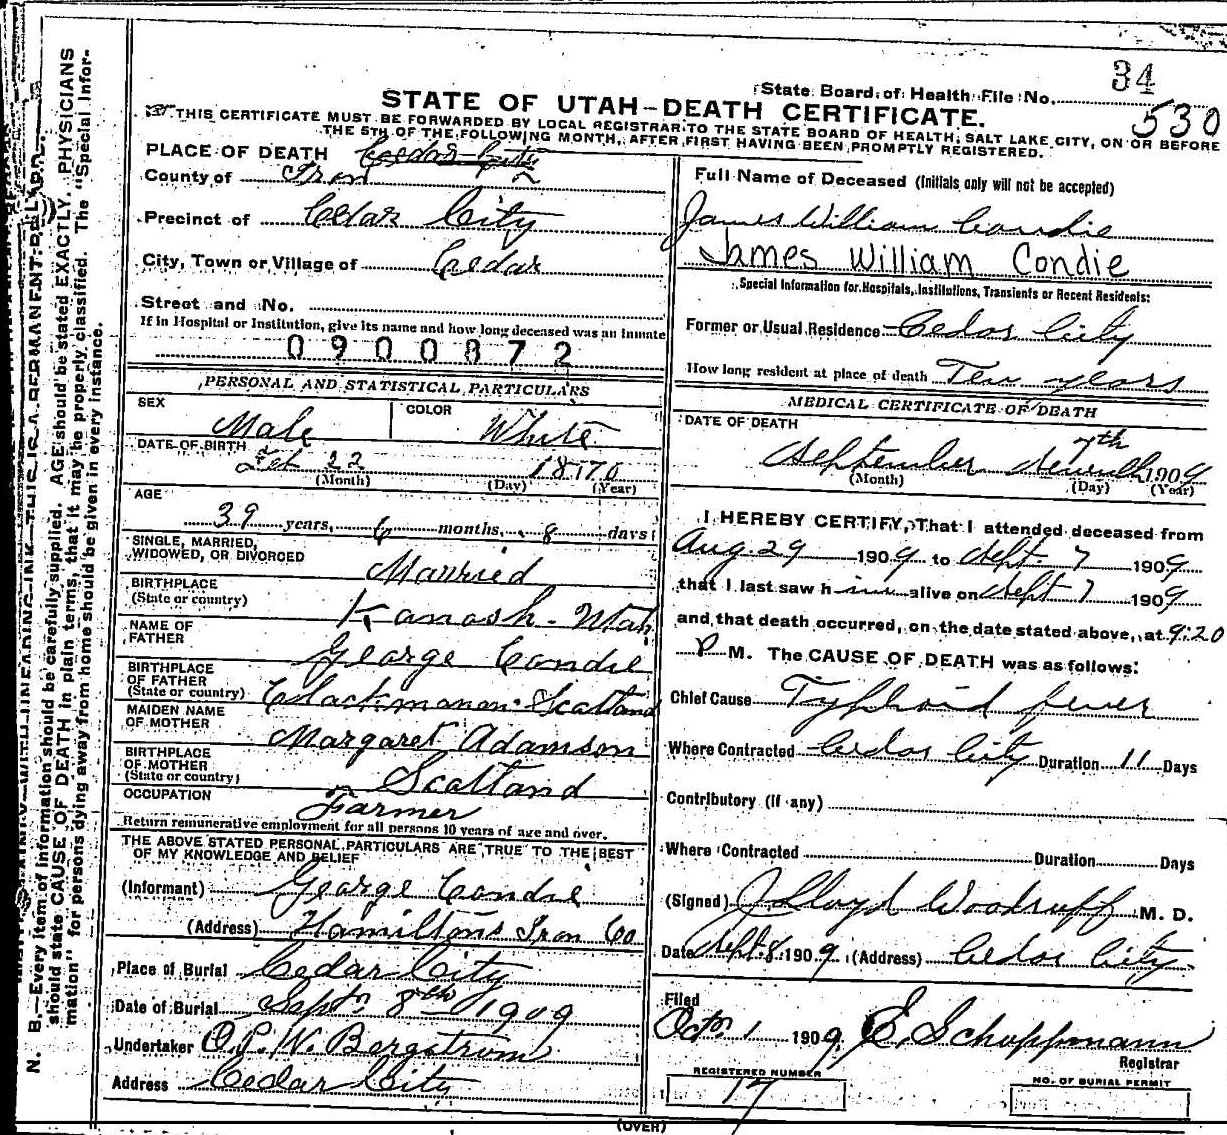 34
State Board of Health File No. 530
STATE OF UTAH-DEATH CERTIFICATE.
THIS CERTIFICATE MUST BE FORWARDED BY LOCAL REGISTRAR TO THE STATE BOARD OF HEALTH, SALT LAKE CITY, ON OR BEFORE
THE 5TH OF THE FOLLOWING MONTH, AFTER FIRST HAVING BEEN PROMPTLY REGISTERED.
PLACE OF DEATH Cedar City
County of Iron
Precinct of Cedar City
City, Town or Village of Cedar
Street and No.
If in Hospital or Institution, give its name and how long deceased was an inmate
0900872
PERSONAL AND STATISTICAL PARTICULARS
SEX Male COLOR White
DATE OF BIRTH Feb 22 1870
(Month) (Day) (Year)
AGE
39 years, 6 months, 8 days
SINGLE, MARRIED,
WIDOWED, OR DIVORCED Married
BIRTHPLACE
(State or country) Kanosh - Utah
NAME OF
FATHER George Condie
BIRTHPLACE
OF FATHER
(State or country) Clackmanan Scotland
MAIDEN NAME
OF MOTHER Margaret Adamson
BIRTHPLACE
OF MOTHER
(State or country) Scotland
OCCUPATION Farmer
Return remunerative employment for all persons 10 years of age and over.
THE ABOVE STATED PERSONAL PARTICULARS ARE TRUE TO THE BEST
OF MY KNOWLEDGE AND BELIEF
(Informant) George Condie
(Address) Hamiltons Iron Co
Place of Burial Cedar City
Date of Burial Sept 8th 1909
Undertaker O.P.W. Bergstrom
Address Cedar City
Full Name of Deceased (Initials only will not be accepted)
James William Condie
James William Condie
Special Information for Hospitals, Institutions, Transients or Recent Residents:
Former or Usual Residence Cedar City
How long resident at place of death Ten years
MEDICAL CERTIFICATE OF DEATH
DATE OF DEATH
7th
September 1909
(Month) (Day) (Year)
I HEREBY CERTIFY, That I attended deceased from
Aug. 29 1909 to Sept. 7 1909
that I last saw him alive on Sept 7 1909
and that death occurred, on the date stated above, at 9:20
P M. The CAUSE OF DEATH was as follows:
Chief Cause Typhoid fever
Where Contracted Cedar City Duration 11 Days
Contributory (if any)
Where Contracted Duration Days
(Signed) J Lloyd Woodruff M. D.
Date Sept. 8, 1909 (Address) Cedar City.
Filed
Oct 1 1909 E. Schoppmann
Registrar
REGISTERED NUMBER
17
NO. OF BURIAL PERMIT
(OVER)
N. B.—Every item of information should be carefully supplied. AGE should be stated EXACTLY. PHYSICIANS
should state CAUSE OF DEATH in plain terms, that it may be properly classified. The "Special Infor-
mation" for persons dying away from home should be given in every instance.